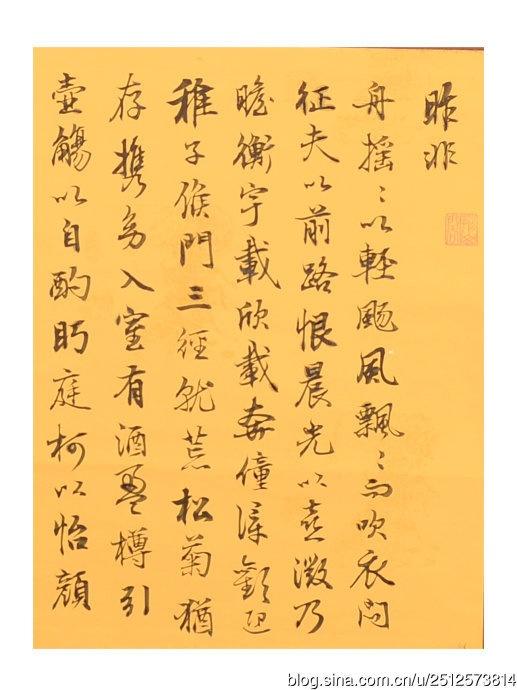 昨非
舟摇〻以輕颺風飄〻而吹衣問
征夫以前路恨晨光以熹微乃
瞻衡宇載欣載奔僮僕歡迎
稚子候門三徑就荒松菊猶
存携幼入室有酒盈樽引
壺觴以自酌眄庭柯以怡顔
blog.sina.com.cn/u/2512573814